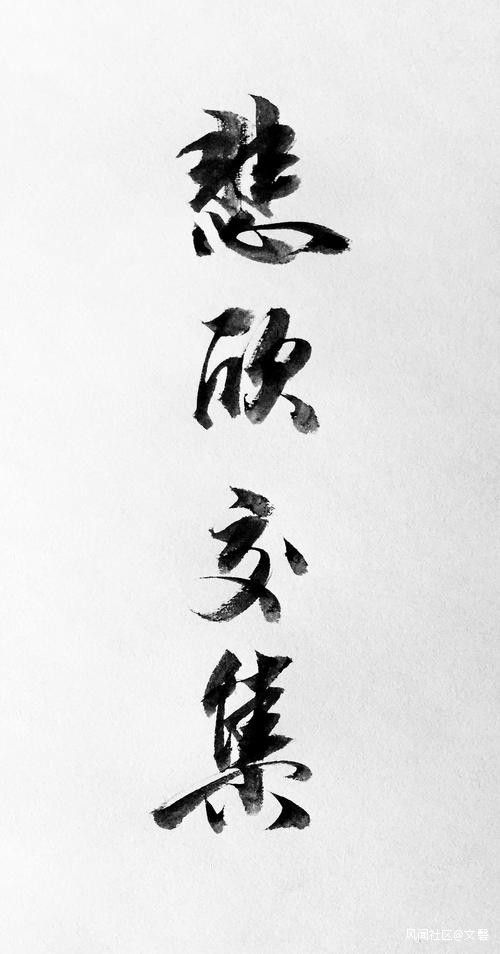 悲欣交集
风闻社区@文馨